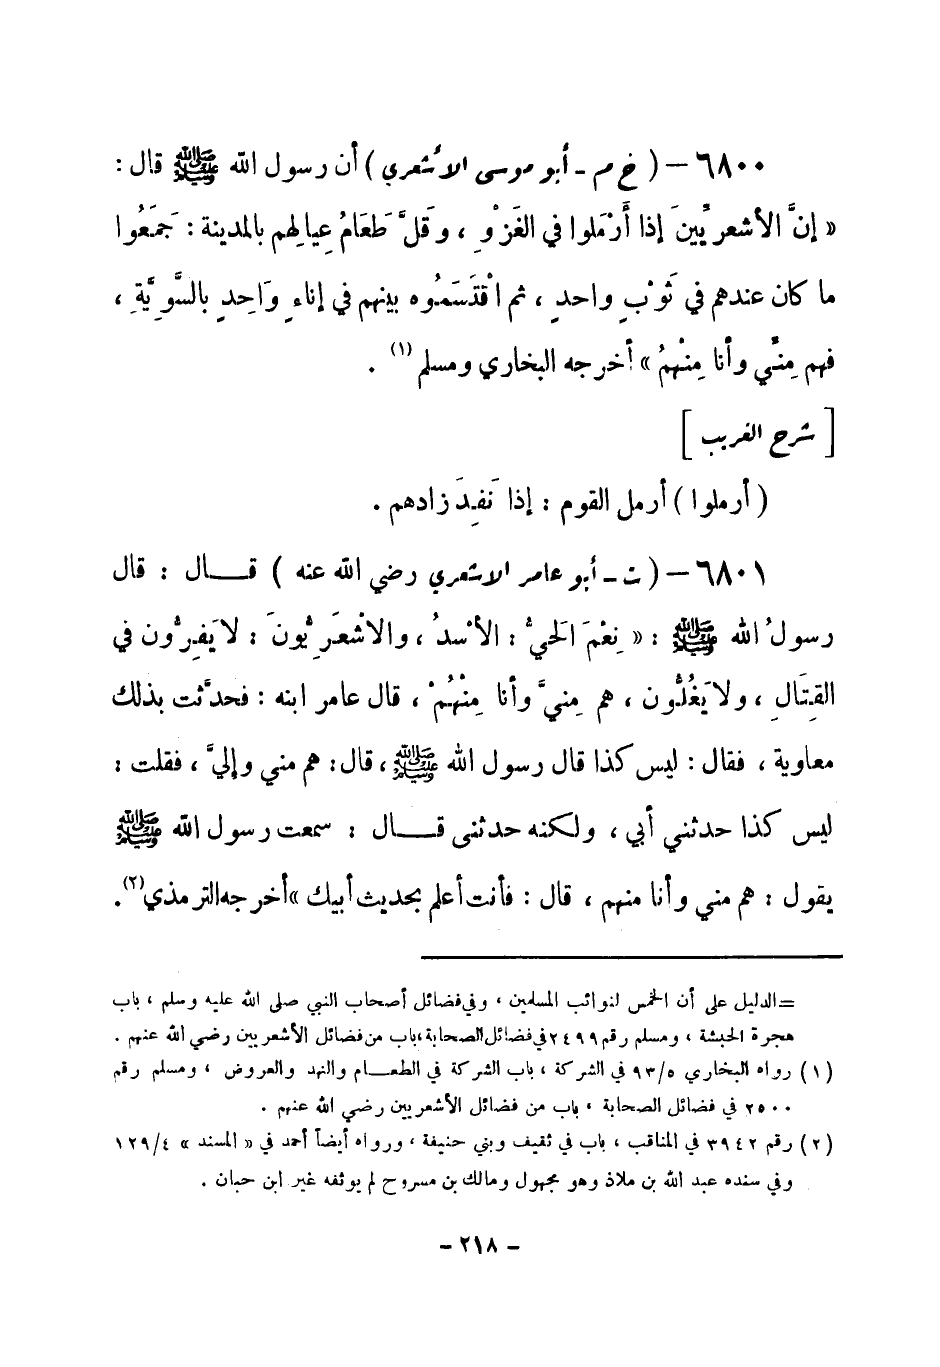 ٦٨٠٠ – ( خ م - أبو موسى الأشعري ) أن رسول الله ﷺ قال :
« إنَّ الأشعريِّينَ إذا أَرْمَلوا في الغَزْوِ ، وَقَلَّ طَعَامُ عِيالِهم بالمدينة : جَمَعُوا
ما كان عندهم في ثَوْبٍ واحدٍ ، ثم اقْتَسَمُوه بينهم في إناءٍ وَاحِدٍ بالسَّوِيَّةِ ،
فهم مِنِّي وأنا مِنْهمُ » أخرجه البخاري ومسلم (١) .
[ شرح الغريب ]
( أرملوا ) أرمل القوم : إذا نَفِدَ زادهم .
٦٨٠١ – ( ت - أبو عامر الأشعري رضي الله عنه ) قـــال : قال
رسولُ الله ﷺ : « نِعْمَ الَحيُّ : الأسْدُ ، والاشْعَرِيُّونَ : لا يَفِرُّون في
القِتَالِ ، ولا يَغُلُّون ، هم مِنيَّ وأنا مِنْهُمْ ، قال عامر ابنه : فحدَّثت بذلك
معاوية ، فقال : ليس كذا قال رسول الله ﷺ ، قال : هم مني وإليَّ ، فقلت :
ليس كذا حدثني أبي ، ولكنه حدثنى قـــال : سمعت رسول الله ﷺ
يقول : هم مني وأنا منهم ، قال : فأنت أعلم بحديث أبيك » أخرجه الترمذي (٢) .
= الدليل على أن الخمس لنوائب المسلمين ، وفي فضائل أصحاب النبي صلى الله عليه وسلم ، باب
هجرة الحبشة ، ومسلم رقم ٢٤٩٩ في فضائل الصحابة ، باب من فضائل الأشعريين رضي الله عنهم .
( ١ ) رواه البخاري ٩٣/٥ في الشركة ، باب الشركة في الطعـــام والنهد والعروض ، ومسلم رقم
٢٥٠٠ في فضائل الصحابة ، باب من فضائل الأشعريين رضي الله عنهم .
( ٢ ) رقم ٣٩٤٢ في المناقب ، باب في ثقيف وبني حنيفة ، ورواه أيضاً أحمد في « المسند » ١٢٩/٤
وفي سنده عبد الله بن ملاذ وهو مجهول ومالك بن مسروح لم يوثقه غير ابن حبان .
- ٢١٨ -